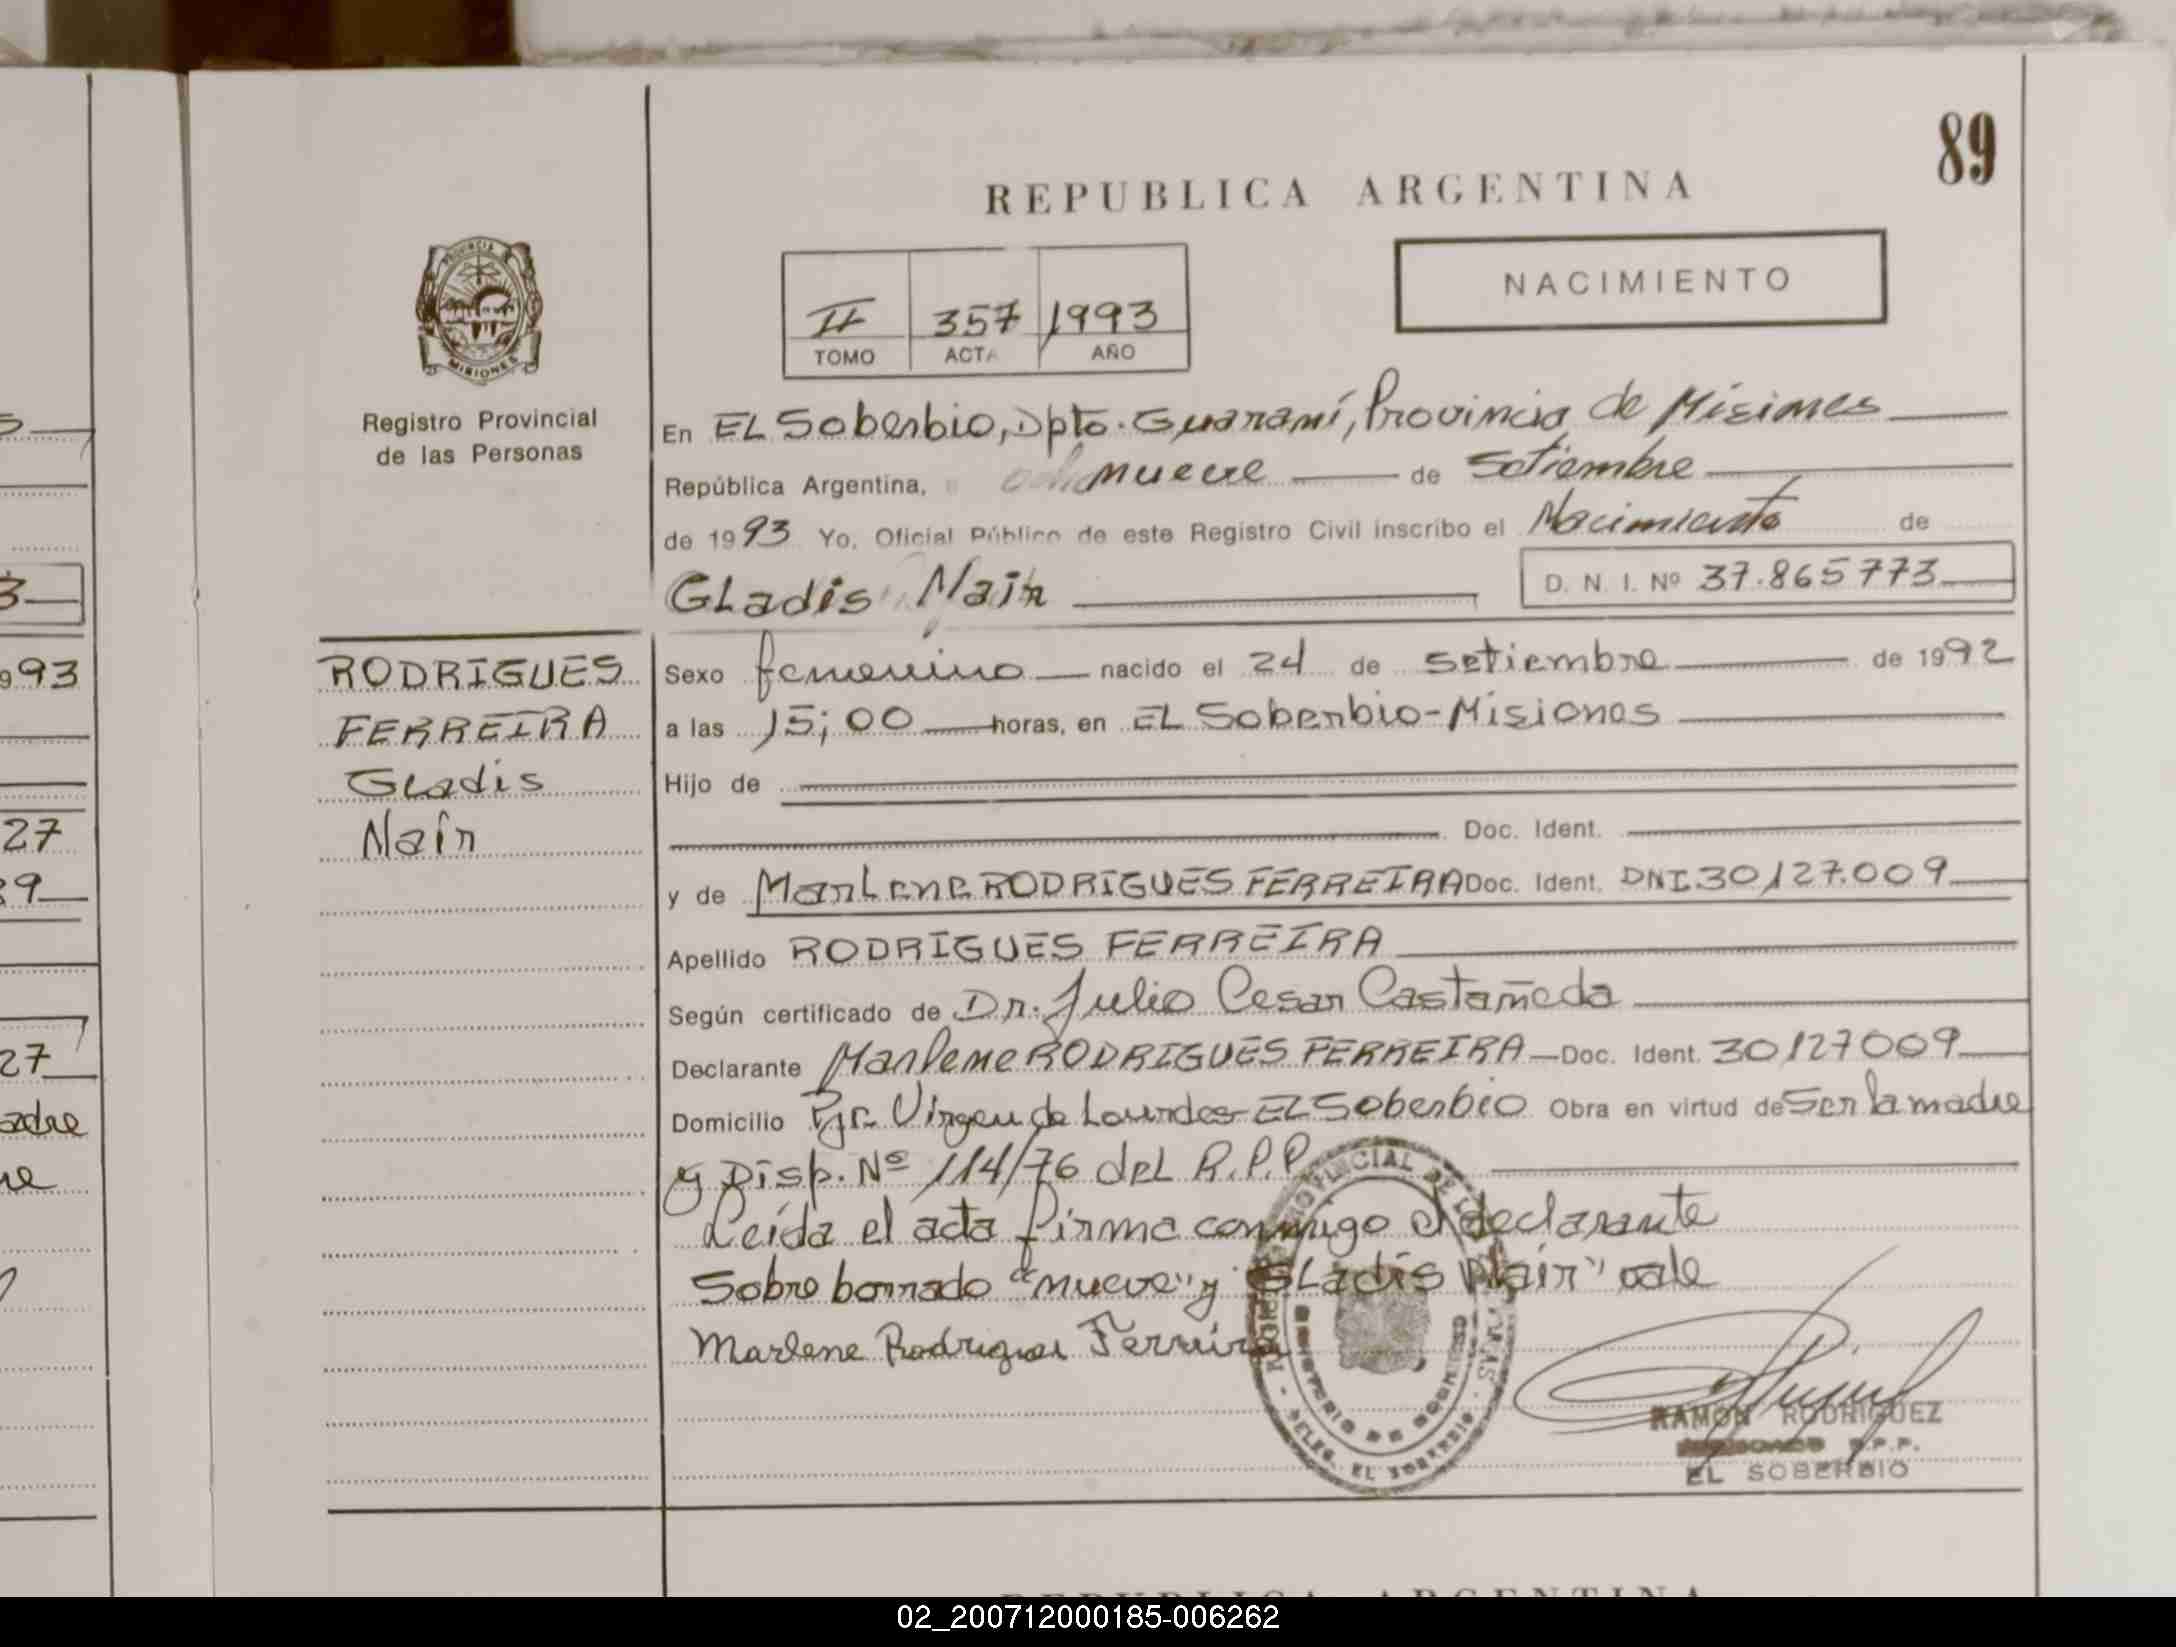 89
REPUBLICA ARGENTINA
PROVINCIA
MISIONES
Registro Provincial
de las Personas
II 357 1993
TOMO ACTA AÑO
NACIMIENTO
En EL Soberbio, Dpto. Guaraní, Provincia de Misiones
República Argentina, nueve de Setiembre
de 1993 Yo, Oficial Público de este Registro Civil inscribo el Nacimiento de
GLadis Nair D. N. I. Nº 37.865773
RODRIGUES
FERREIRA
Gladis
Nair
Sexo femenino nacido el 24 de setiembre de 1992
a las 15;00 horas, en EL Soberbio-Misiones
Hijo de
Doc. Ident.
y de MarLene RODRIGUES FERREIRA Doc. Ident. DNI.30127.009
Apellido RODRIGUES FERREIRA
Según certificado de Dr. Julio Cesar Castañeda
Declarante Marlene RODRIGUES FERREIRA Doc. Ident. 30127009
Domicilio Pje. Virgen de Lourdes-EL Soberbio Obra en virtud de Ser la madre
y Disp. Nº 114/76 deL R.P.P
Leída el acta firma conmigo el declarante
Sobre borrado "nueve" y "GLadis Nair" vale
Marlene Rodrigues Ferreira
MINISTERIO DE GOBIERNO
DELEG. EL SOBERBIO
RAMON RODRIGUEZ
R.P.P.
EL SOBERBIO
REPUBLICA ARGENTINA
93
27
27
adre
02_200712000185-006262